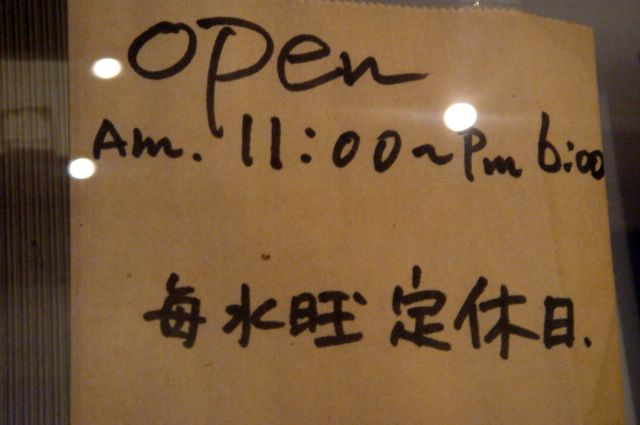 open
Am. 11:00~Pm 6:00
毎水旺 定休日.